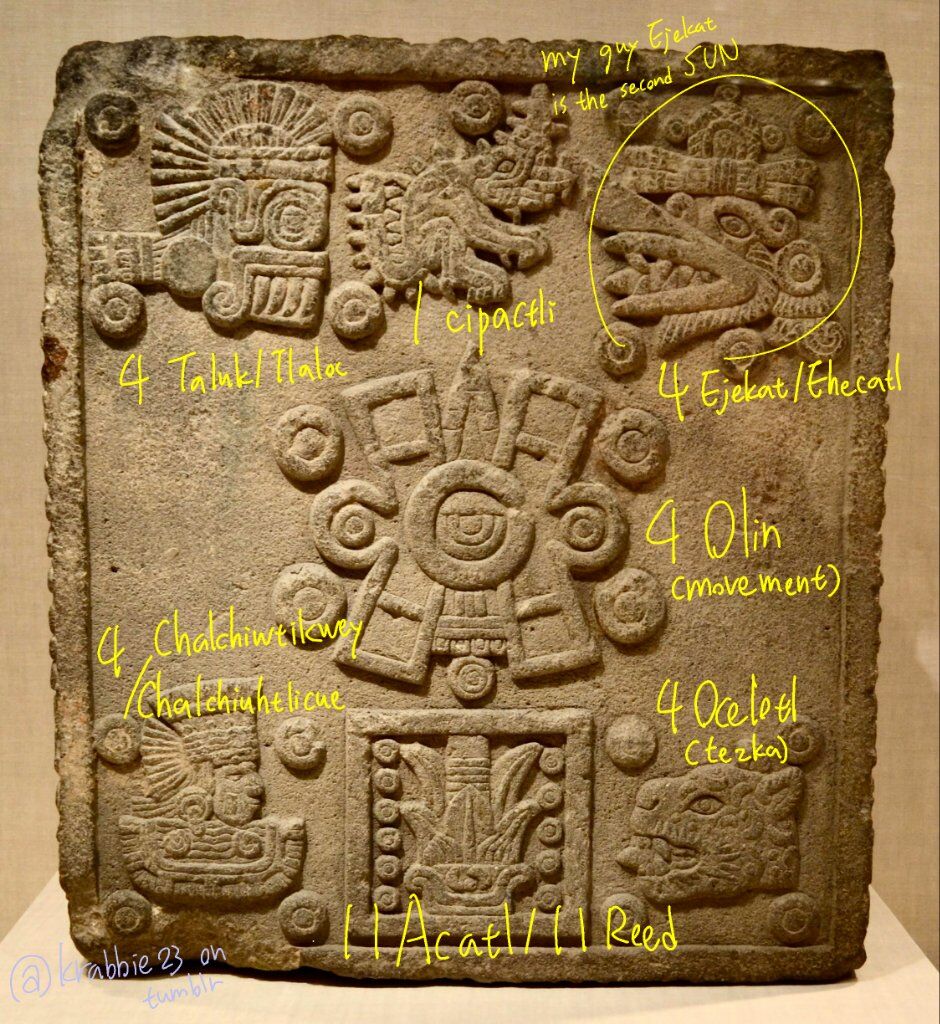 my guy Ejekat
is the second SUN
4 Taluk/Tlaloc
1 cipactli
4 Ejekat/Ehecatl
4 Olin
(movement)
4 Chalchiwtikwey
/Chalchiuhtlicue
4 Ocelotl
(tezka)
11 Acatl/11 Reed
@krabbie23 on
tumblr